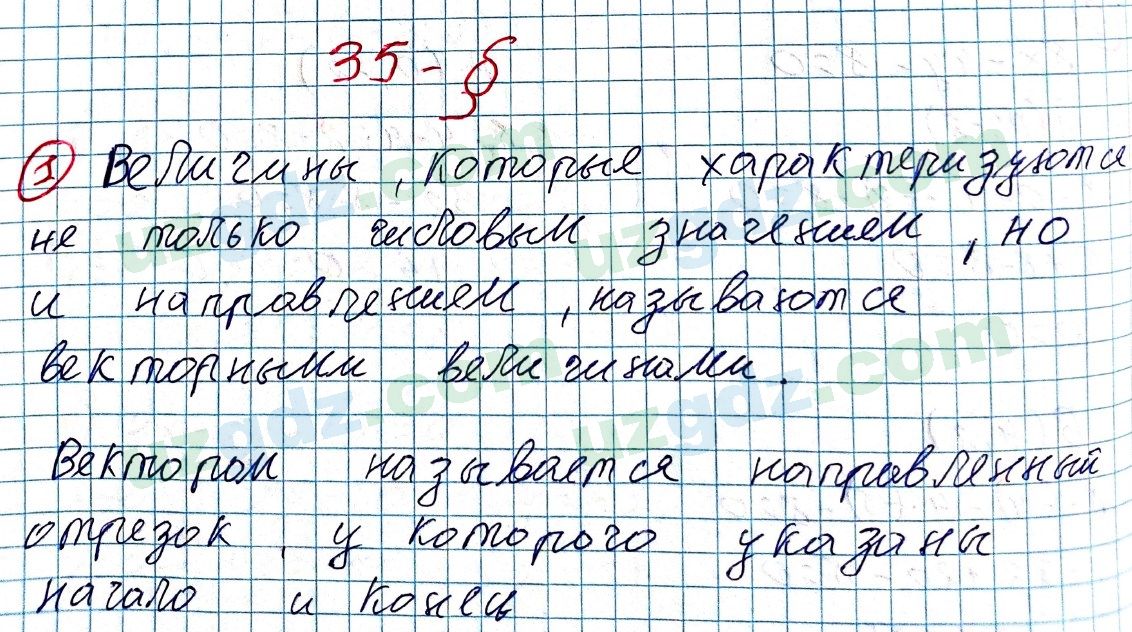 35-§
① Величины, которые характеризуются
не только числовым значением, но
и направлением, называются
векторными величинами.
Вектором называется направленный
отрезок, у которого указаны
начало и конец
uzgdz.com uzgdz.com
uzgdz.com uzgdz.com